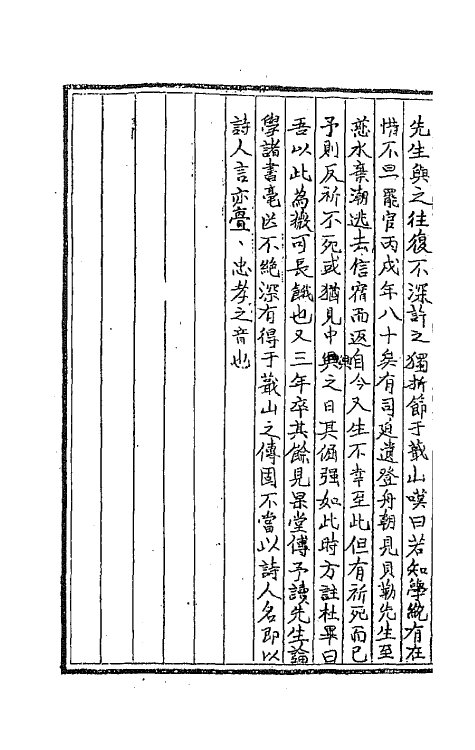 先生與之往復不深許之獨折節于蕺山嘆曰若知學統有在
惜不早罷官丙戌年八十矣有司迫遣登舟朝見貝勒先生至
慈水棄潮逃去信宿而返自今又生不幸至此但有祈死而已
予則反祈不死或猶見中興之日其倔强如此時方註杜畢曰
吾以此為薇可長餓也又三年卒其餘見杲堂傳予讀先生論
學諸書毫釐不絶深有得于蕺山之傳固不當以詩人名即以
詩人言亦亹、忠孝之音也